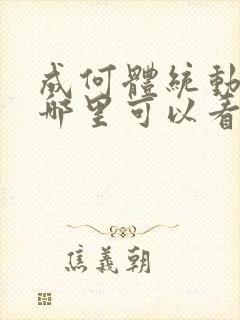 成何體統動
哪里可以看
焦義朝